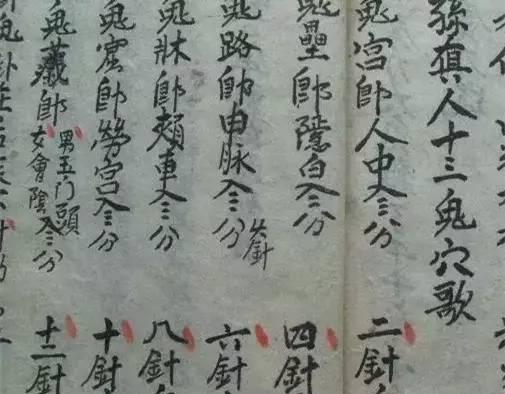 孫真人十三鬼穴歌
鬼宮即人中入三分 二針
鬼壘即隱白入三分 四針
鬼路即申脉入三分 火針 六針
鬼牀即頰車入三分 八針
鬼窟即勞宮入三分 十針
鬼藏即 男玉门頭 女會陰入三分 十二針